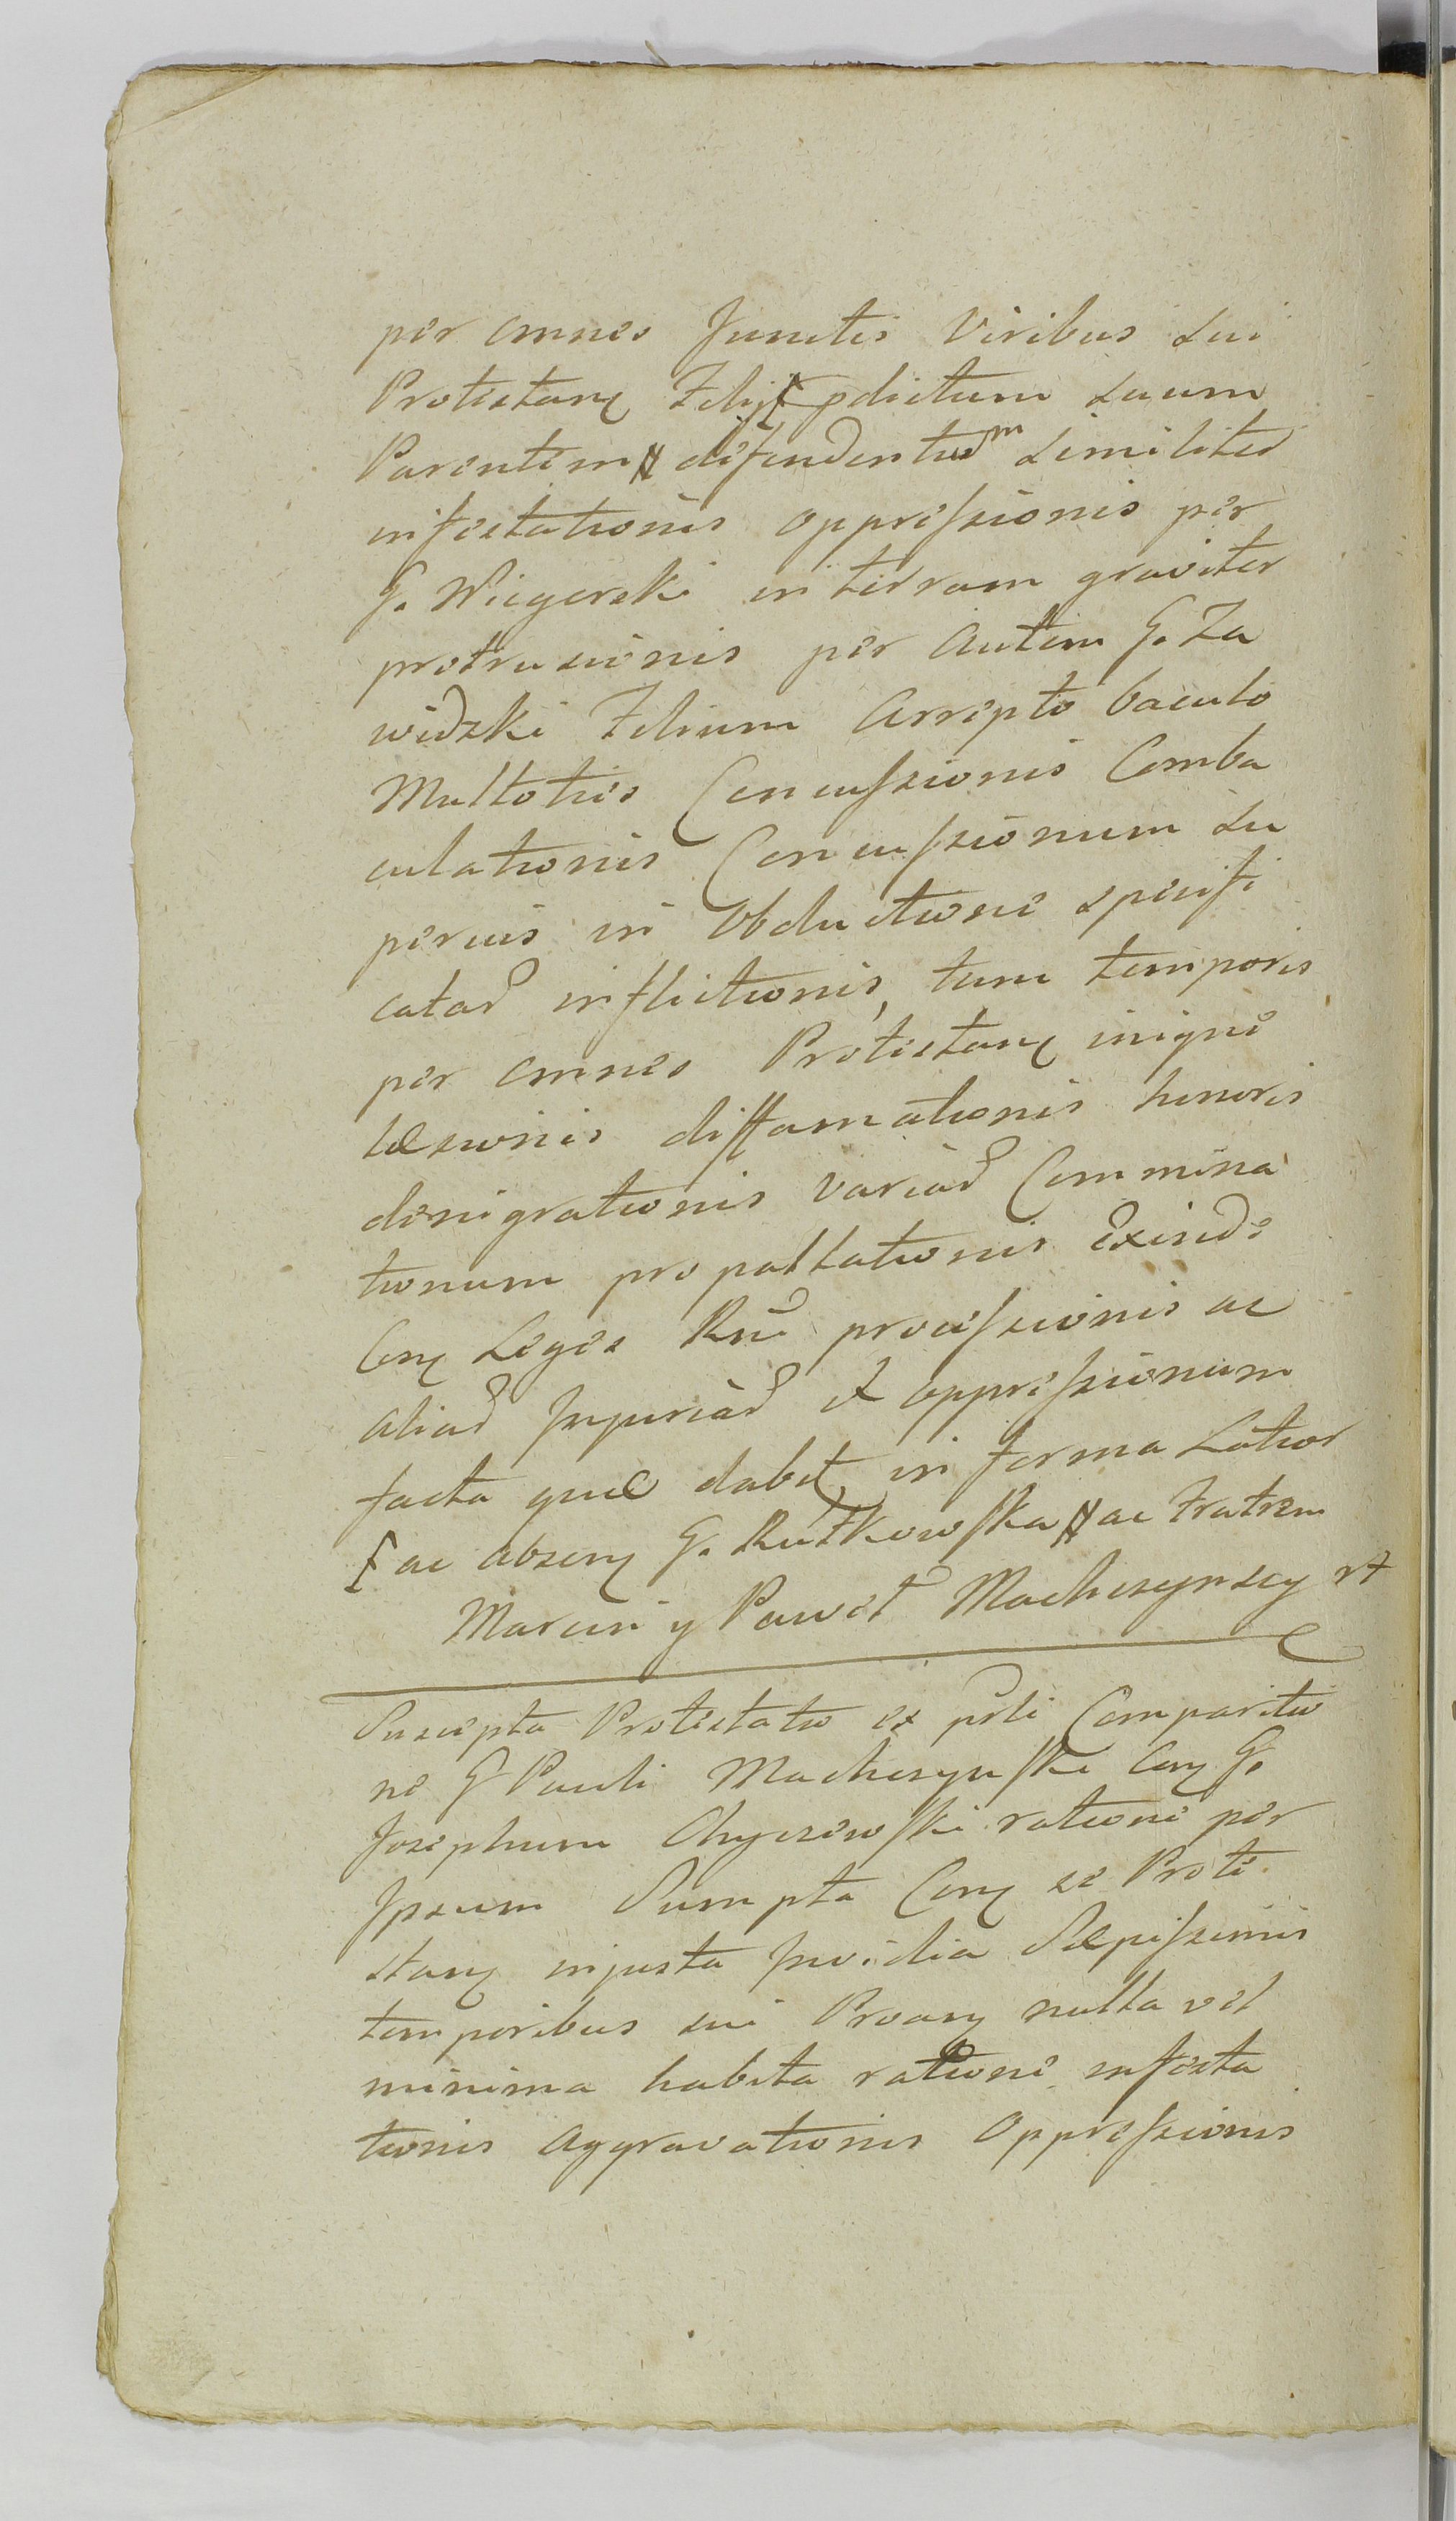 per omnes Junctis Viribus sui
Protestang Filij pdictum suum
Parentem defendentem similiter
infestationis oppressionis per
G. Wiegerski in terram graviter
protrusionis per autem G. Za
widzki Filium Arrepto baculo
Multoties Concussionis Comba
culationis Concussionum su
perius in Obductione specifi
catar inflictionis, tum temporis
per omnes Protestang inique
læsionis diffamationis honoris
denigrationis variar Commina
tionum propallationis Exinde
Cong Leges Rni processionis ac
aliar Injuriar et oppressionum
facta que dabit in forma Latior
ac abseng G. Rutkowska ac Fratrem
Marcin y Paweł Machczynscy
Suscepta Protestatio ex prsti Comparitio
ne G Pauli Machczynski Cong G.
Josephum Chyczewski ratione per
Ipsum Sumpta Cong se Prote
stang injusta Invidia Sæpissimis
temporibus sui Proang nulla vel
minima habita ratione infesta
tionis Aggravationis Oppressionis